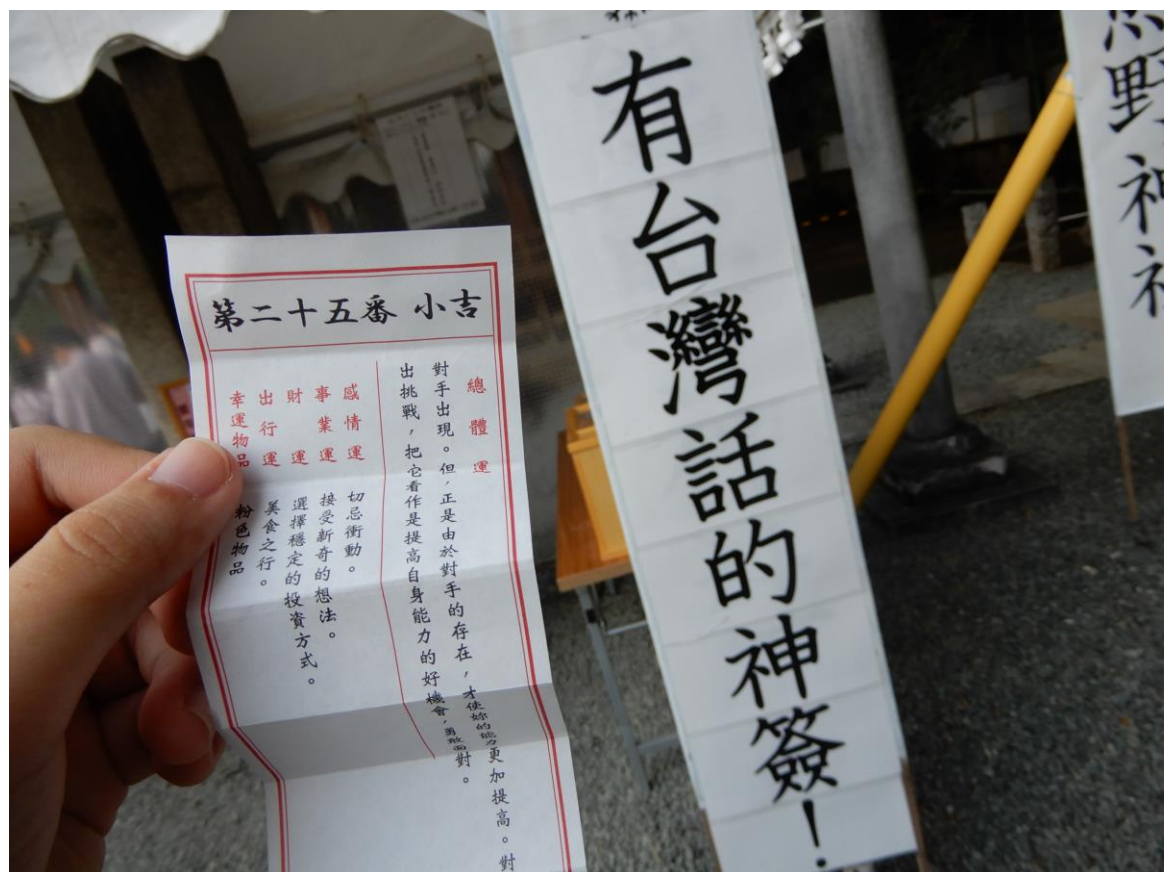 第二十五番 小吉
總體運
對手出現。但,正是由於對手的存在,才使妳的能力更加提高。對
出挑戰,把它看作是提高自身能力的好機會,勇敢面對。
感情運 切忌衝動。
事業運 接受新奇的想法。
財運 選擇穩定的投資方式。
出行運 美食之行。
幸運物品 粉色物品
有台灣話的神簽!
野神社